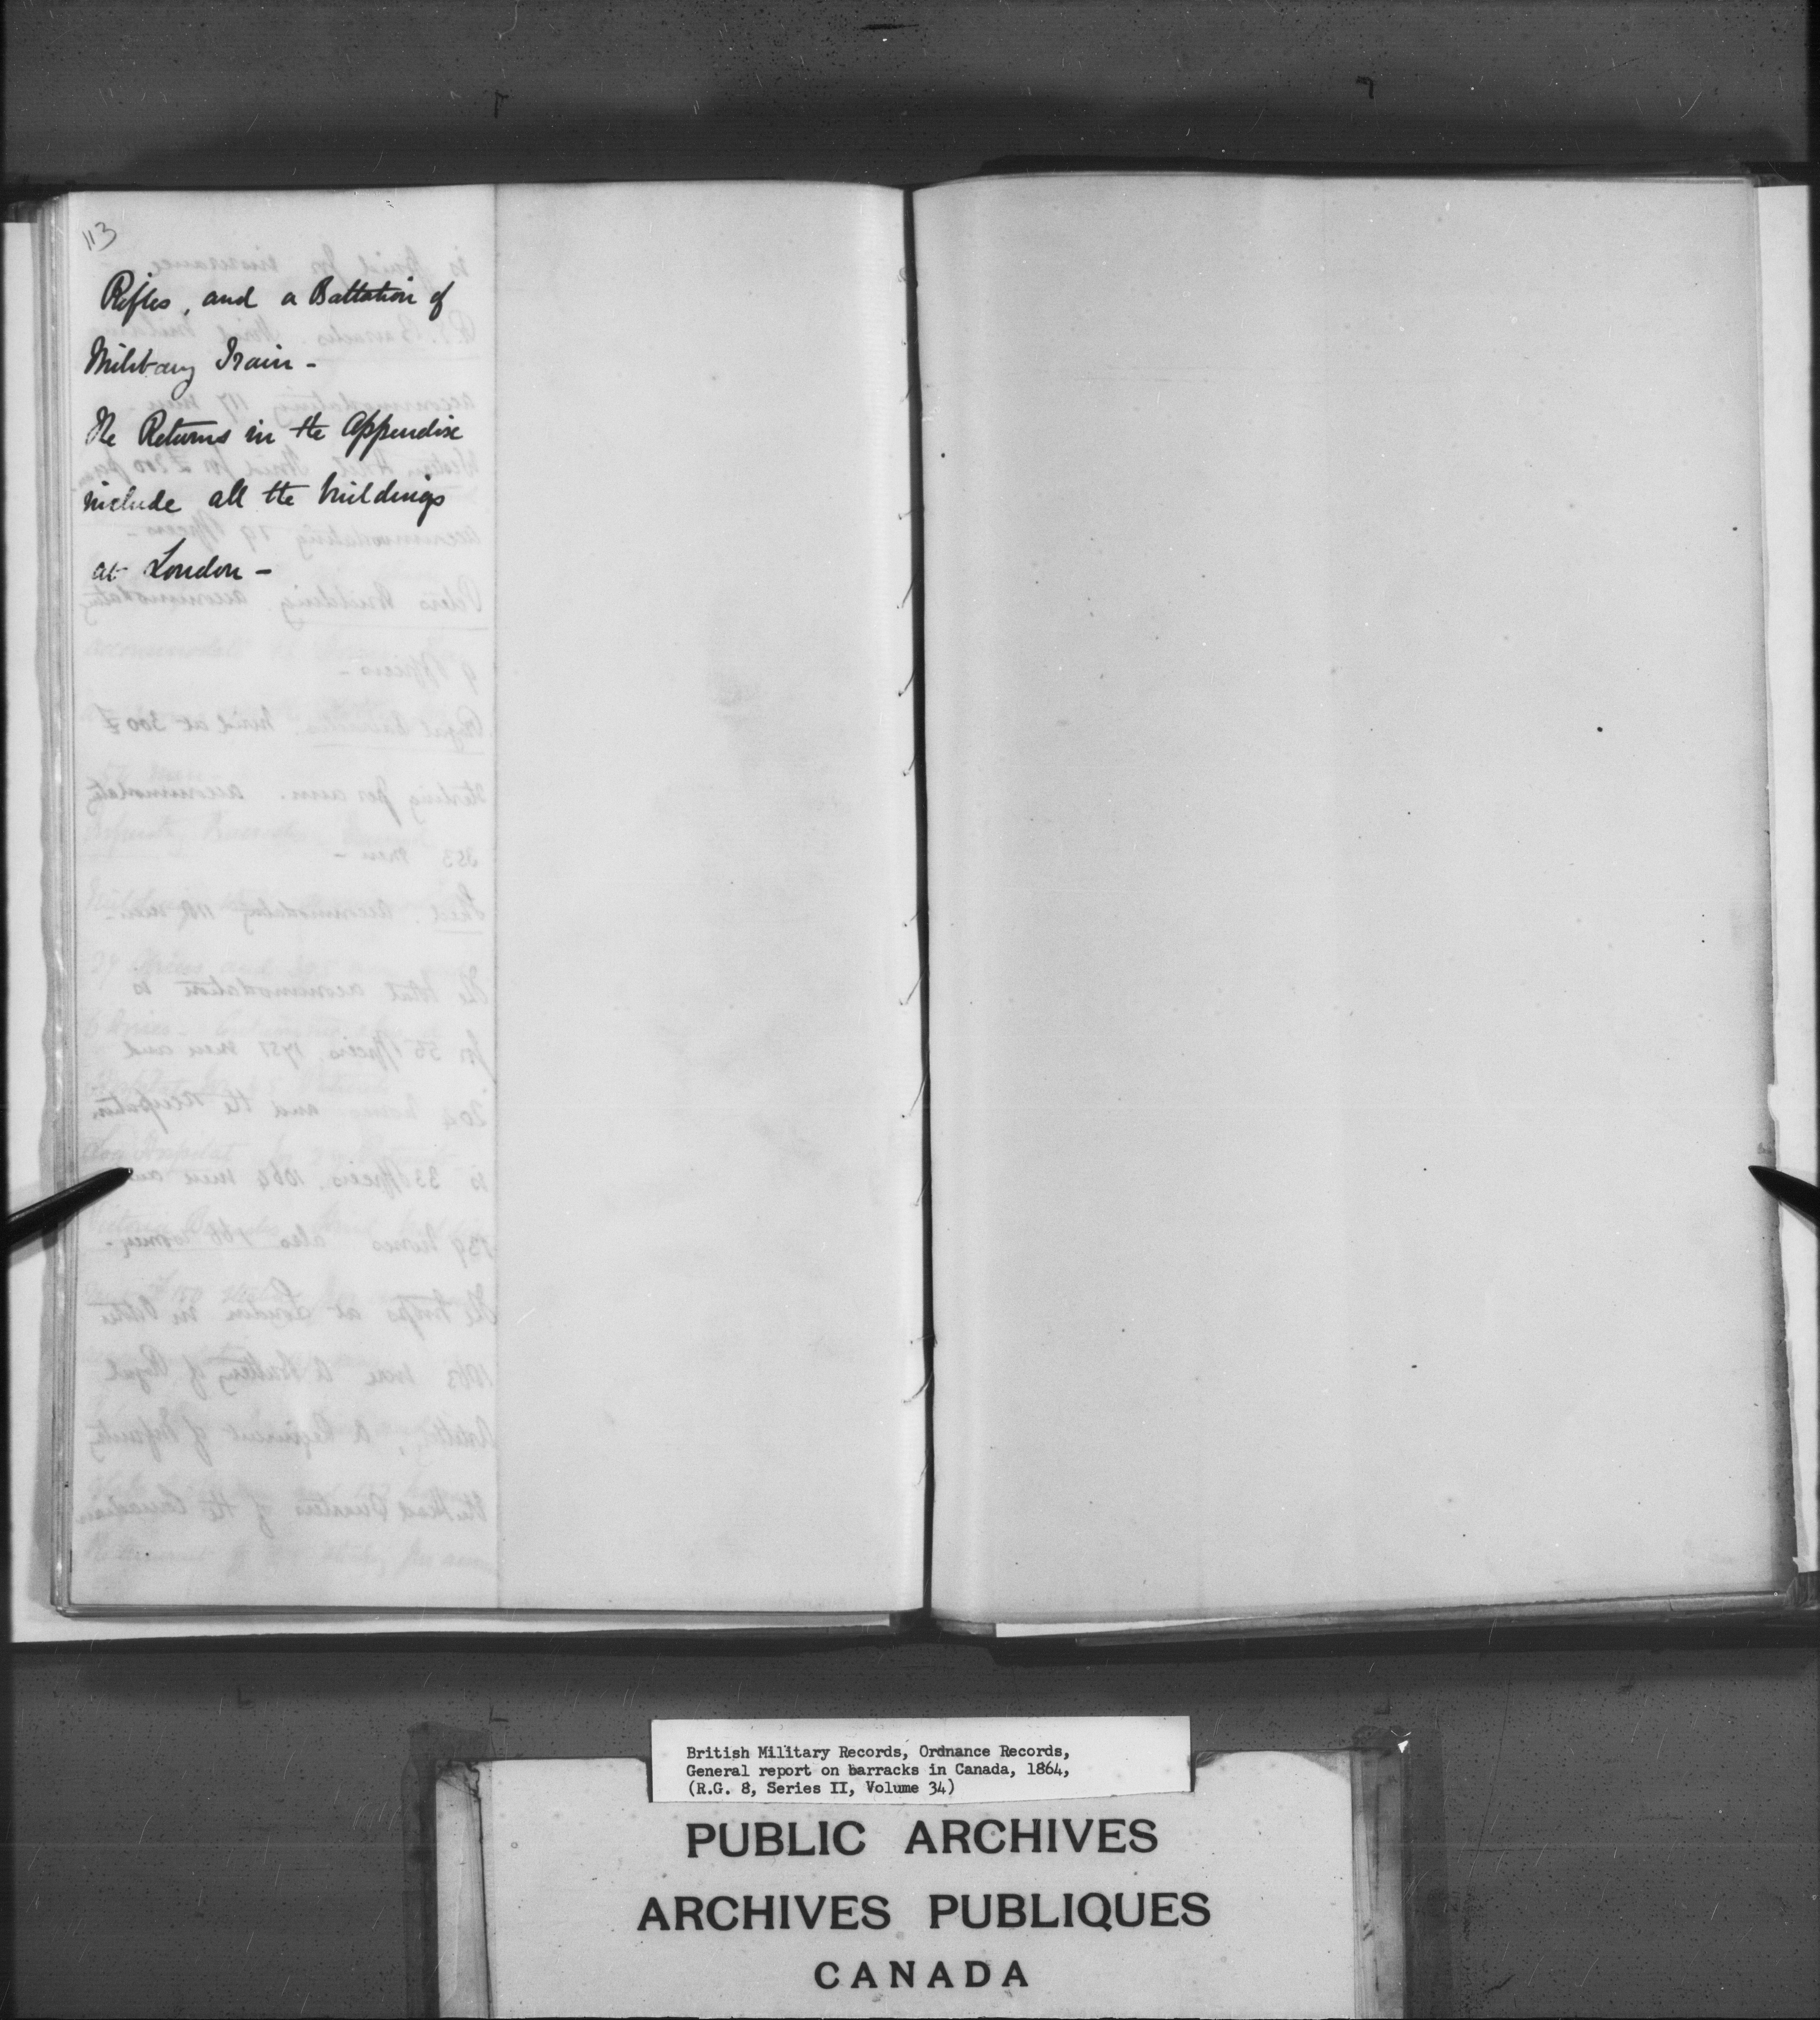 113
Rifles, and a Battalion of
Military Train -
The Returns in the Appendix
include all the buildings
at London -
British Military Records, Ordnance Records,
General report on barracks in Canada, 1864,
(R.G. 8, Series II, Volume 34)
PUBLIC ARCHIVES
ARCHIVES PUBLIQUES
CANADA